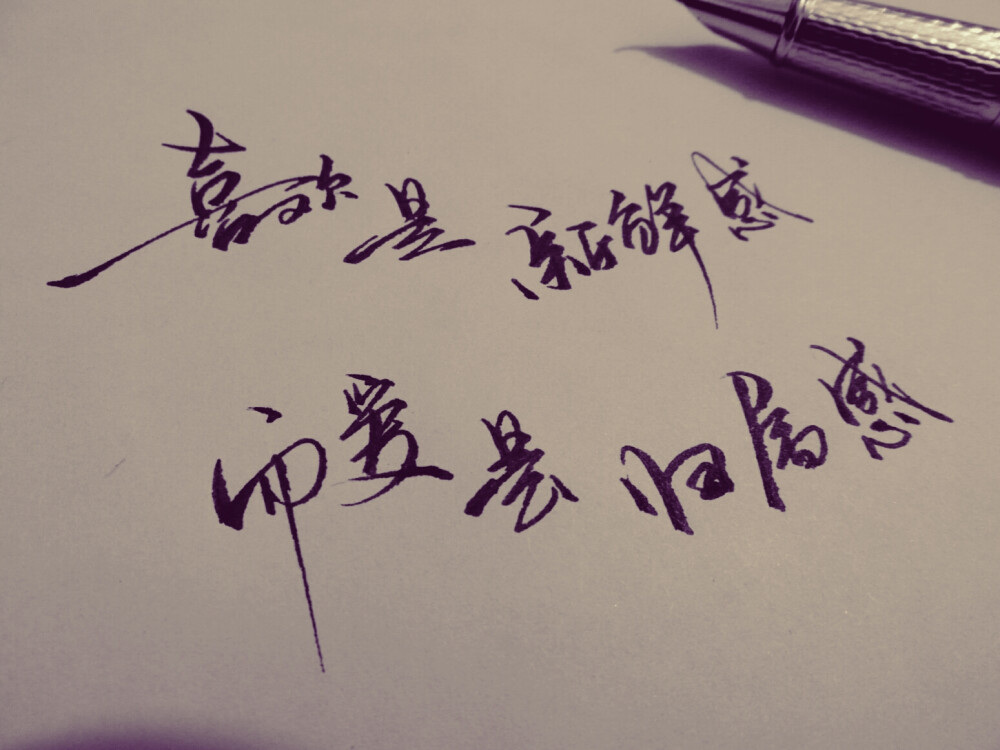 喜欢是新鲜感
而爱是归属感